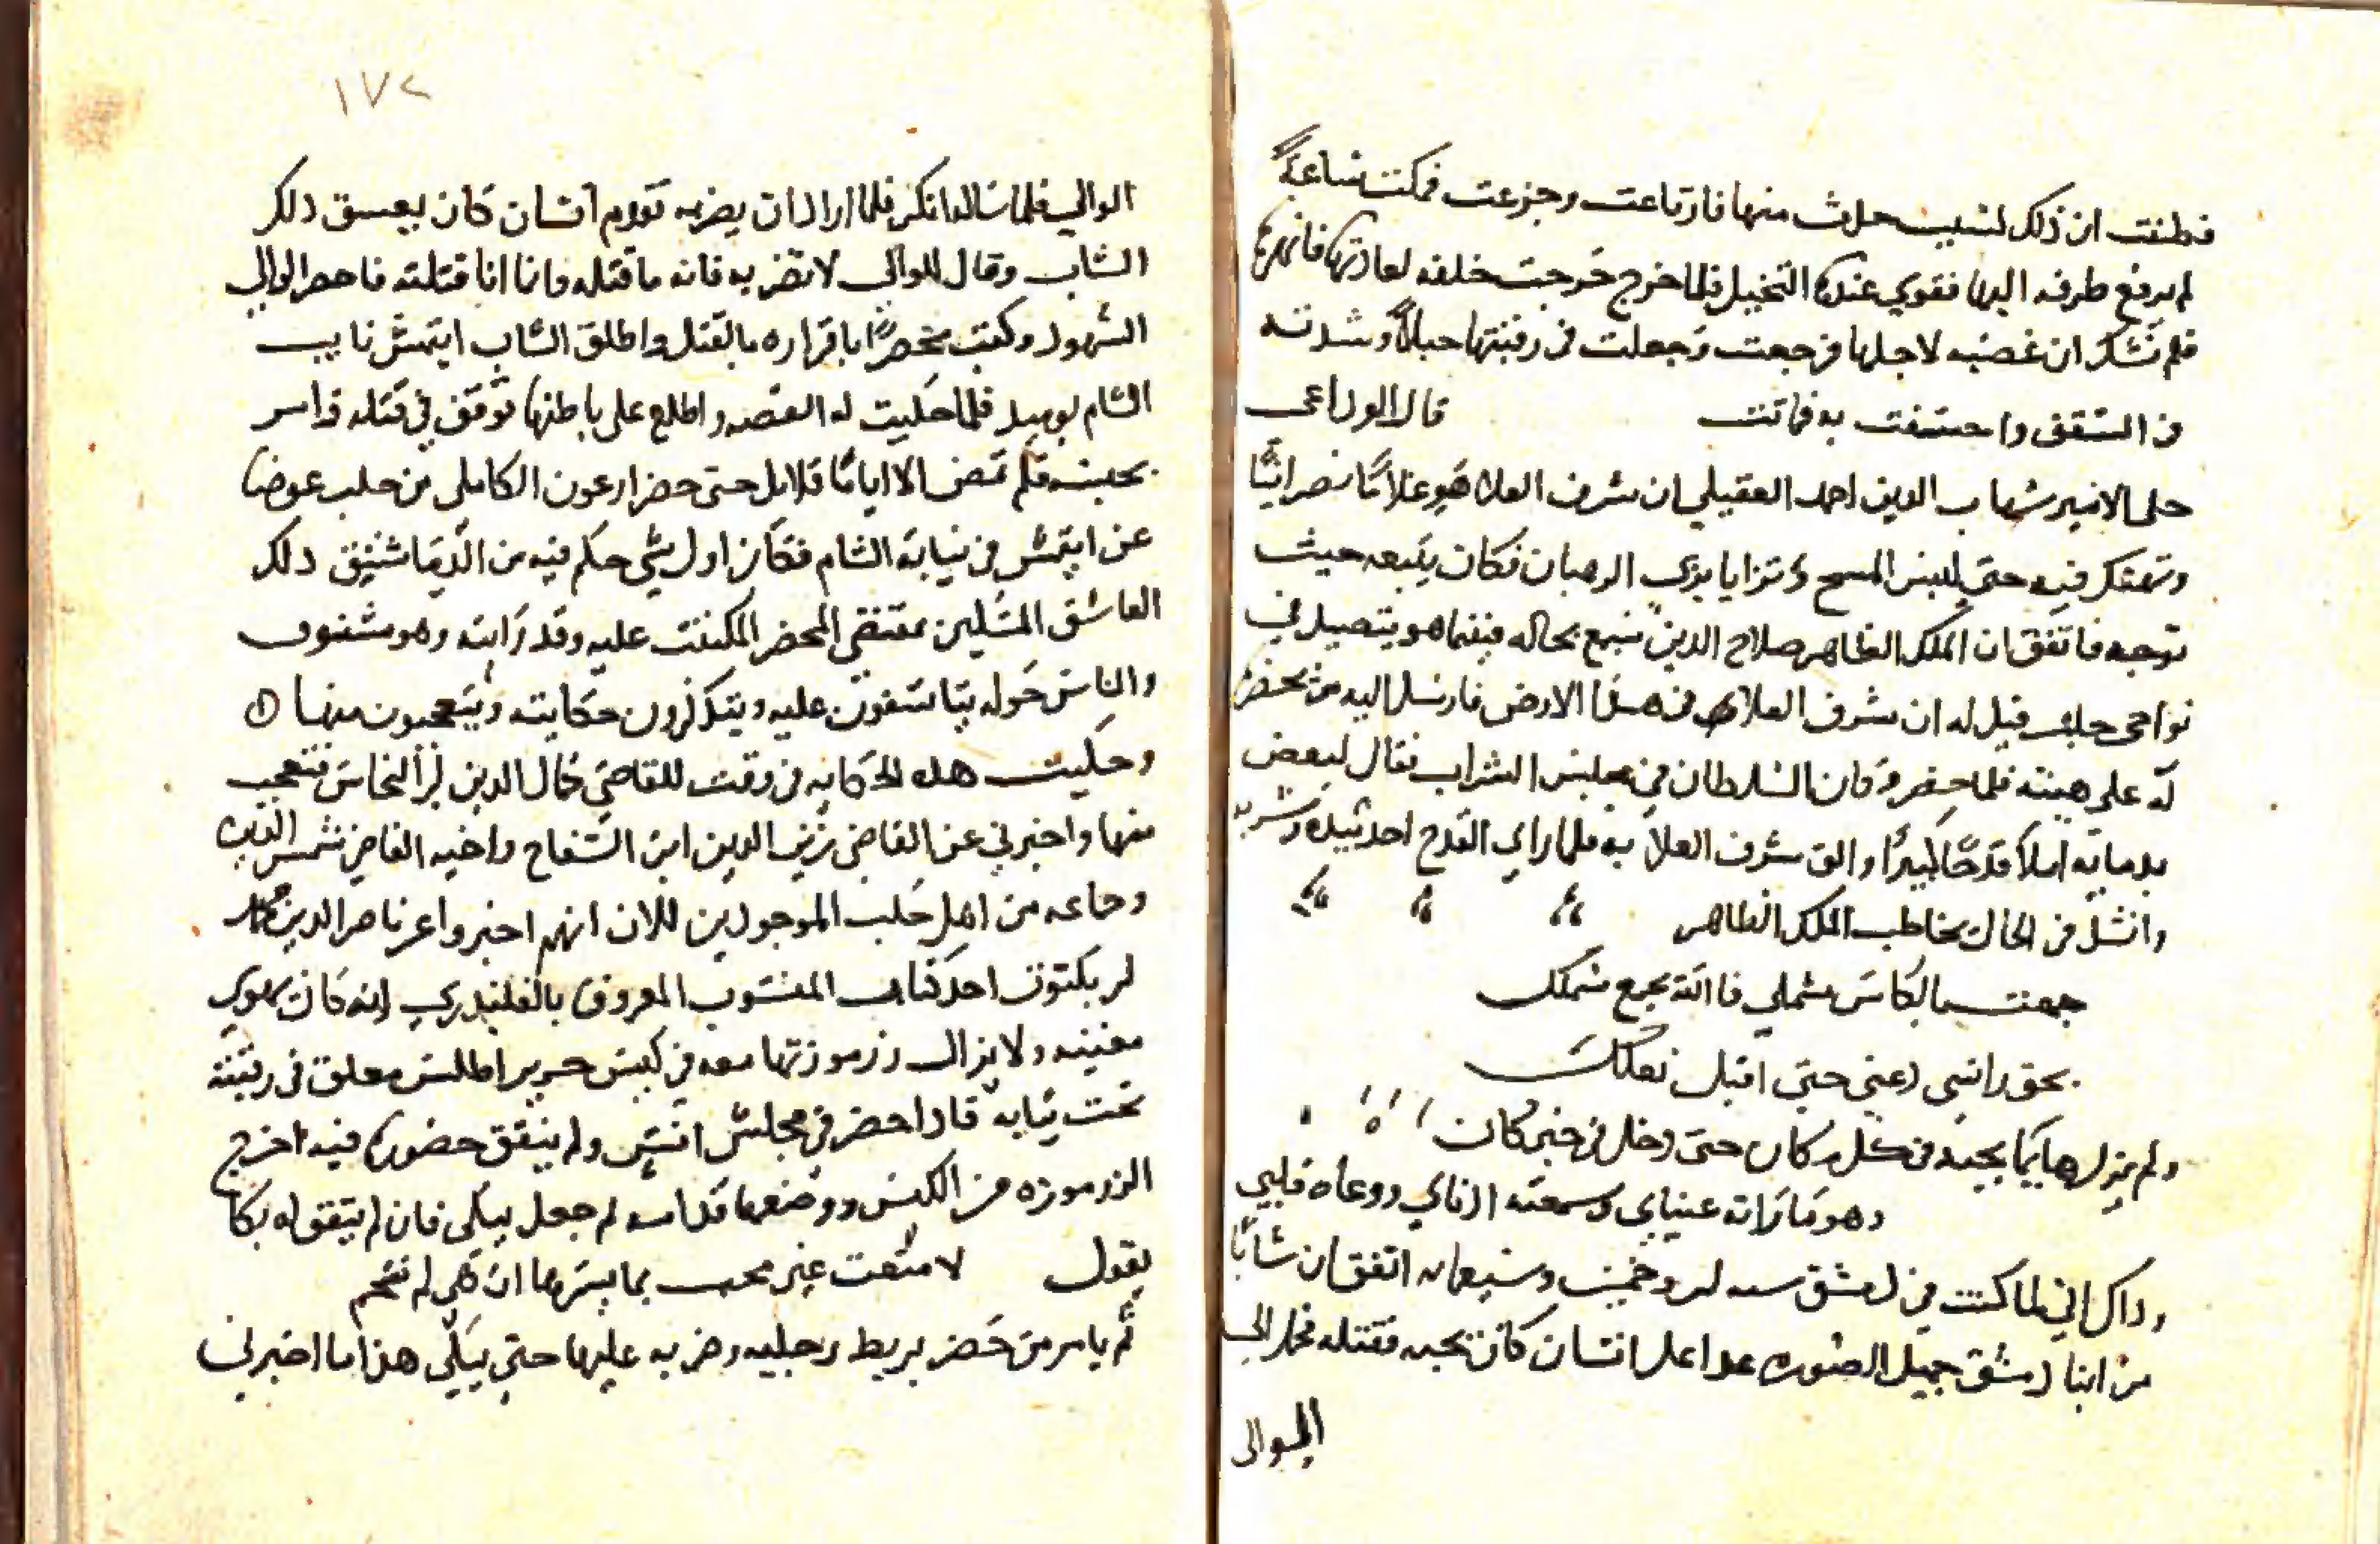 فظنت ان ذلك لسبب حدث منها فارتاعت وجزعت فمكثت ساعة
لم يرفع طرفه اليها فقوي عندها التخيل فلما خرج خرجت خلفه لعادتها فانهرها
فلم تشك ان غضبه لاجلها فرجعت وجعلت في رقبتها حبلاً وشدته
في السقف واختنقت به فماتت قال الوداعي
حلى الامير شهاب الدين احمد العقيلي ان شرف العلا هوي غلامًا نصرانيًا
وتهتك فيه حتى لبس المسح وتزايا بزي الرهبان فكان يتبعه حيث
توجه فاتفق ان الملك الظاهر صلاح الدين سمع بحاله فبينما هو يتصيد في
نواحي حلب قيل له ان شرف العلا في هذا الارض فارسل اليه من يحضره
له على هيئته فلما حضر وكان السلطان في مجلس الشراب فقال لبعض
ندمايه املأ قدحًا كبيرًا والق شرف العلا به فلما راي القدح اخذ بيده وشربه
وانشد في الحال يخاطب الملك الظاهر
جمعت بالكاس شملي فالله يجمع شملك
بحق راسي دعني حتى اقبل نعلك
ولم يزل هايمًا بحبه في كل مكان حتى دخل في خبر كان
وهو ما راته عيناي وسمعته اذناي ووعاه قلبي
وذاك اني لما كنت في دمشق سنه اربع وخمسين وسبعمايه اتفق ان شابًا
من ابنا دمشق جميل الصورة عدا على انسان كان يحبه فقتله فحمل الى
الوالى
١٧٢
الوالي فلما سالوا انكر فلما اراد ان يضربه تقدم انسان كان يعشق ذلك
الشاب وقال للوالى لا تضربه فانه ما قتله وانا انا قتلته فاحضر الوالي
الشهود وكتب محضرًا باقراره بالقتل واطلق الشاب ايتمش نايب
الشام يوميد فلما حكيت له القصه واطلع على باطنها توقف في قتله وامر
بحبسه فلم تمض الا ايامًا قلايل حتى حضر ارغون الكاملي من حلب عوضا
عن ايتمش في نيابة الشام فكان اول شي حكم فيه من الدما شنق ذلك
العاشق المسكين بمقتضى المحضر المكتتب عليه وقد رايته وهو مشنوق
والناس حوله يتاسفون عليه ويتذكرون حكايته ويتعجبون منها
وحكيت هذه الحكايه في وقت للقاضي كمال الدين بن النحاس فتعجب
منها واخبرني عن القاضي زين الدين ابن السفاح واخيه القاضي شمس الدين
وجماعه من اهل حلب الموجودين للان انهم اخبروا عن ناصر الدين محمد
بن بكتوت احد كتاب المنسوب المعروف بالقلندري انه كان يهوي
مغنيه ولا يزال زرموزتها معه في كيس حرير اطلس معلق في رقبته
تحت ثيابه فاذا حضر في مجلس انس ولم يتفق حضورها فيه اخرج
الزرموزه من الكيس ووضعها قدامه ثم جعل يبكي فان لم يتفق له بكا
يقول لا متعت عين محب بما يسرها ان هي لم تسجم
ثم يامر من حضر بربط رجليه وضربه عليها حتى يبكي هذا ما اخبرني